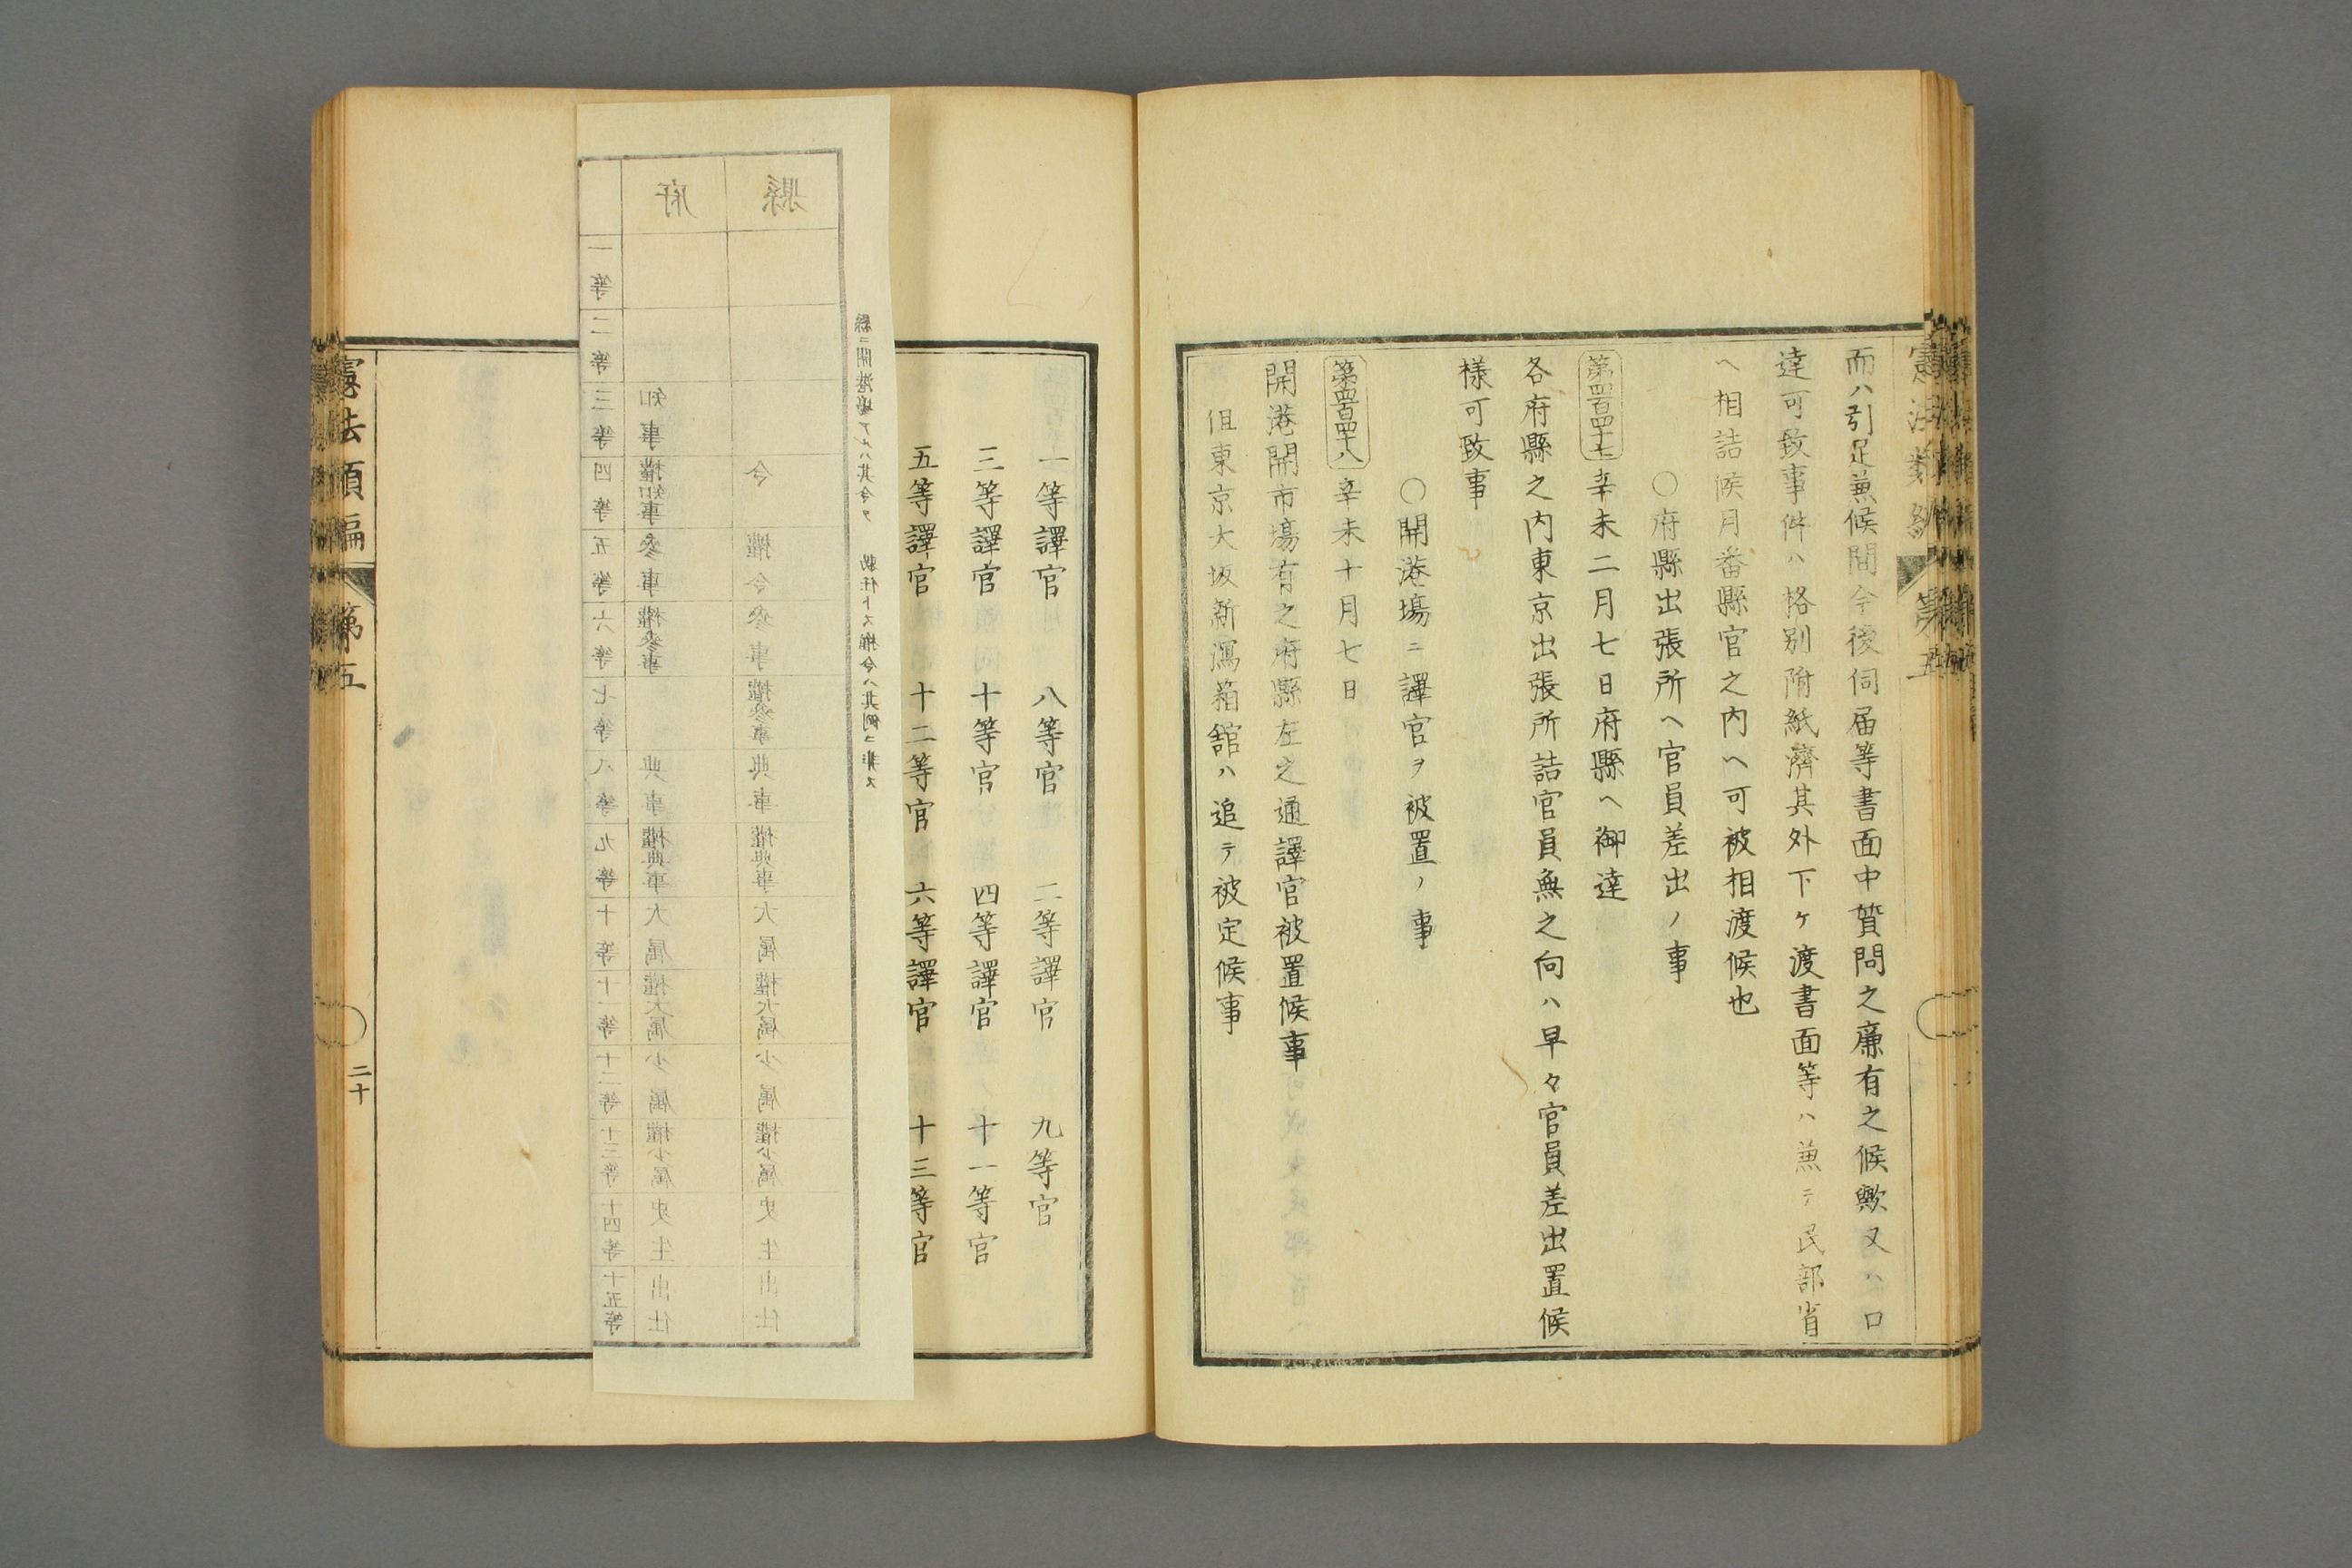 而ハ引足兼候間今後伺届等書面中質問之廉有之候歟又ハ口
達可致事件ハ格别附紙濟其外下ケ渡書面等ハ兼テ民部省
ヘ相詰候月番縣官之内ヘ可被相渡候也
○府縣出張所ヘ官員差出ノ事
第四百四十七 辛未二月七日府縣ヘ御達
各府縣之内東京出張所詰官員無之向ハ早々官員差出置候
樣可致事
○開港塲ニ譯官ヲ被置ノ事
第四百四十八 辛未十月七日
開港開市塲有之府縣左之通譯官被置候事
但東京大坂新瀉箱舘ハ追テ被定候事
一等譯官 八等官 二等譯官 九等官
三等譯官 十等官 四等譯官 十一等官
五等譯官 十二等官 六等譯官 十三等官
縣ニ開港塲アルハ其令ヲ勅任トス權令ハ其例ニ非ス
縣 令 權令 參事 權參事 典事 權典事 大属 權大属 少属 權少属 史生 出仕
府 知事 權知事 參事 權參事 典事 權典事 大属 權大属 少属 權少属 史生 出仕
一等 二等 三等 四等 五等 六等 七等 八等 九等 十等 十一等 十二等 十三等 十四等 十五等
憲法類編 第五
二十